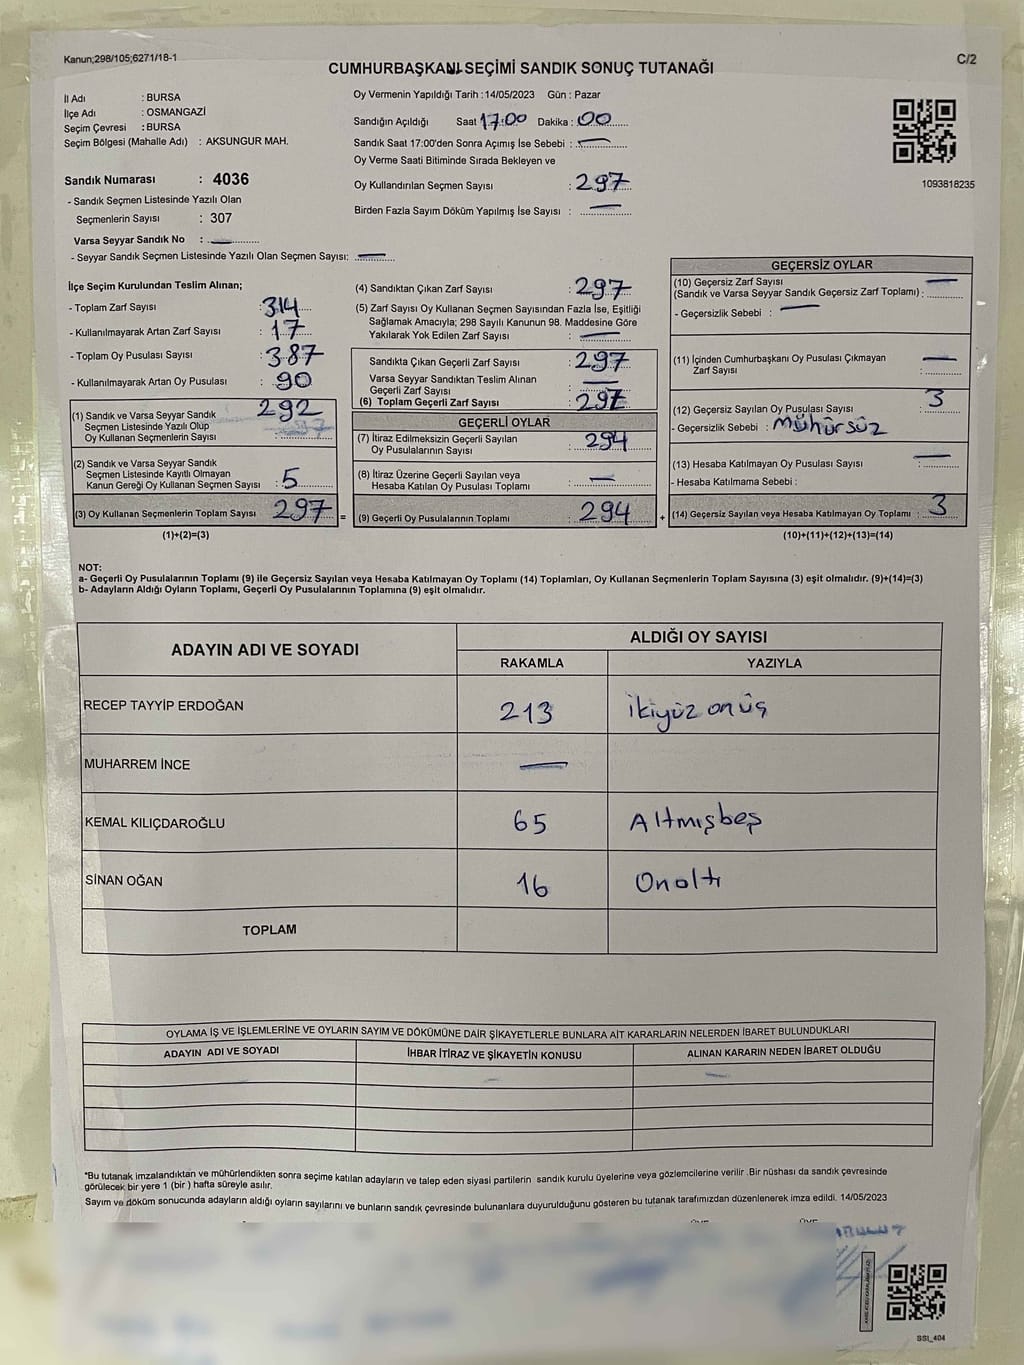 Kanun;298/105;6271/18-1
C/2
CUMHURBAŞKANI SEÇİMİ SANDIK SONUÇ TUTANAĞI
İl Adı : BURSA
İlçe Adı : OSMANGAZİ
Seçim Çevresi : BURSA
Seçim Bölgesi (Mahalle Adı) : AKSUNGUR MAH.
Sandık Numarası : 4036
- Sandık Seçmen Listesinde Yazılı Olan
Seçmenlerin Sayısı : 307
Varsa Seyyar Sandık No : —
- Seyyar Sandık Seçmen Listesinde Yazılı Olan Seçmen Sayısı: —
Oy Vermenin Yapıldığı Tarih : 14/05/2023 Gün : Pazar
Sandığın Açıldığı Saat 17:00 Dakika : 00
Sandık Saat 17:00'den Sonra Açımış İse Sebebi : —
Oy Verme Saati Bitiminde Sırada Bekleyen ve
Oy Kullandırılan Seçmen Sayısı : 297
Birden Fazla Sayım Döküm Yapılmış İse Sayısı : —
1093818235
İlçe Seçim Kurulundan Teslim Alınan;
- Toplam Zarf Sayısı : 314
- Kullanılmayarak Artan Zarf Sayısı : 17
- Toplam Oy Pusulası Sayısı : 387
- Kullanılmayarak Artan Oy Pusulası : 90
(1) Sandık ve Varsa Seyyar Sandık 292
Seçmen Listesinde Yazılı Olup
Oy Kullanan Seçmenlerin Sayısı :
(2) Sandık ve Varsa Seyyar Sandık
Seçmen Listesinde Kayıtlı Olmayan
Kanun Gereği Oy Kullanan Seçmen Sayısı : 5
(3) Oy Kullanan Seçmenlerin Toplam Sayısı 297
(1)+(2)=(3)
=
(4) Sandıktan Çıkan Zarf Sayısı : 297
(5) Zarf Sayısı Oy Kullanan Seçmen Sayısından Fazla İse, Eşitliği
Sağlamak Amacıyla; 298 Sayılı Kanunun 98. Maddesine Göre
Yakılarak Yok Edilen Zarf Sayısı : —
Sandıkta Çıkan Geçerli Zarf Sayısı : 297
Varsa Seyyar Sandıktan Teslim Alınan
Geçerli Zarf Sayısı : —
(6) Toplam Geçerli Zarf Sayısı : 297
GEÇERLİ OYLAR
(7) İtiraz Edilmeksizin Geçerli Sayılan
Oy Pusulalarının Sayısı : 294
(8) İtiraz Üzerine Geçerli Sayılan veya
Hesaba Katılan Oy Pusulası Toplamı : —
(9) Geçerli Oy Pusulalarının Toplamı : 294
+
GEÇERSİZ OYLAR
(10) Geçersiz Zarf Sayısı —
(Sandık ve Varsa Seyyar Sandık Geçersiz Zarf Toplamı) :
- Geçersizlik Sebebi : —
(11) İçinden Cumhurbaşkanı Oy Pusulası Çıkmayan
Zarf Sayısı : —
(12) Geçersiz Sayılan Oy Pusulası Sayısı : 3
- Geçersizlik Sebebi : Mühürsüz
(13) Hesaba Katılmayan Oy Pusulası Sayısı : —
- Hesaba Katılmama Sebebi :
(14) Geçersiz Sayılan veya Hesaba Katılmayan Oy Toplamı : 3
(10)+(11)+(12)+(13)=(14)
NOT:
a- Geçerli Oy Pusulalarının Toplamı (9) ile Geçersiz Sayılan veya Hesaba Katılmayan Oy Toplamı (14) Toplamları, Oy Kullanan Seçmenlerin Toplam Sayısına (3) eşit olmalıdır. (9)+(14)=(3)
b- Adayların Aldığı Oyların Toplamı, Geçerli Oy Pusulalarının Toplamına (9) eşit olmalıdır.
ADAYIN ADI VE SOYADI
ALDIĞI OY SAYISI
RAKAMLA YAZIYLA
RECEP TAYYİP ERDOĞAN 213 ikiyüz onüç
MUHARREM İNCE —
KEMAL KILIÇDAROĞLU 65 Altmışbeş
SİNAN OĞAN 16 Onaltı
TOPLAM
OYLAMA İŞ VE İŞLEMLERİNE VE OYLARIN SAYIM VE DÖKÜMÜNE DAİR ŞİKAYETLERLE BUNLARA AİT KARARLARIN NELERDEN İBARET BULUNDUKLARI
ADAYIN ADI VE SOYADI İHBAR İTİRAZ VE ŞİKAYETİN KONUSU ALINAN KARARIN NEDEN İBARET OLDUĞU
*Bu tutanak imzalandıktan ve mühürlendikten sonra seçime katılan adayların ve talep eden siyasi partilerin sandık kurulu üyelerine veya gözlemcilerine verilir .Bir nüshası da sandık çevresinde
görülecek bir yere 1 (bir ) hafta süreyle asılır.
Sayım ve döküm sonucunda adayların aldığı oyların sayılarını ve bunların sandık çevresinde bulunanlara duyurulduğunu gösteren bu tutanak tarafımızdan düzenlenerek imza edildi. 14/05/2023
SSI_404